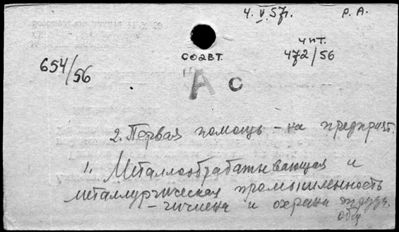 4. V. 57г. р. А.
чит.
соавт. 472/56
654/56
А с
2. Первая помощь - на предприят.
1. Металлообрабатывающая и
металлургическая промышленность
- гигиена и охрана труда
общ.